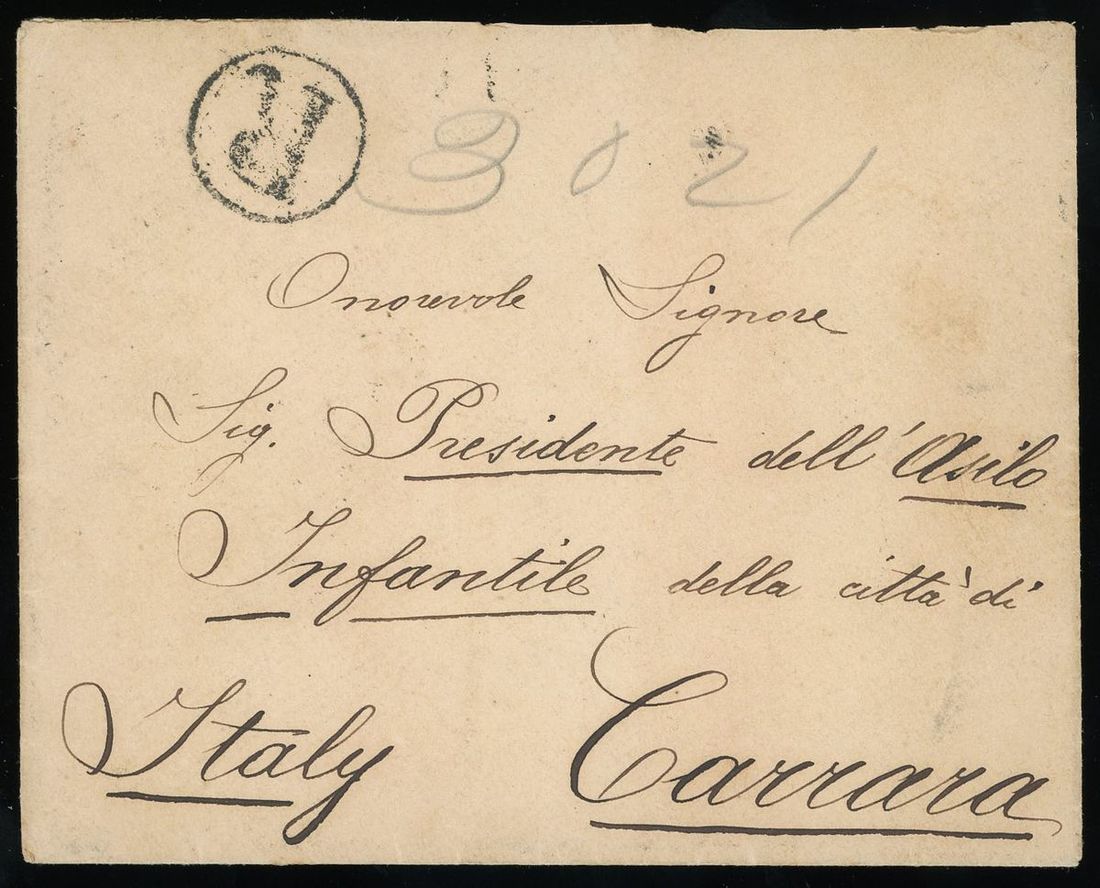 R
3021
Onorevole Signore
Sig. Presidente dell' Asilo
Infantile della città di
Italy Carrara